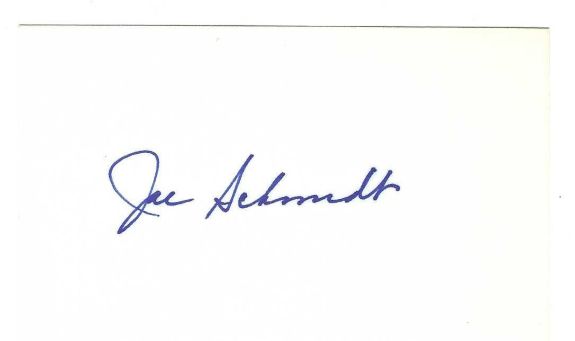 Joe Schmidt